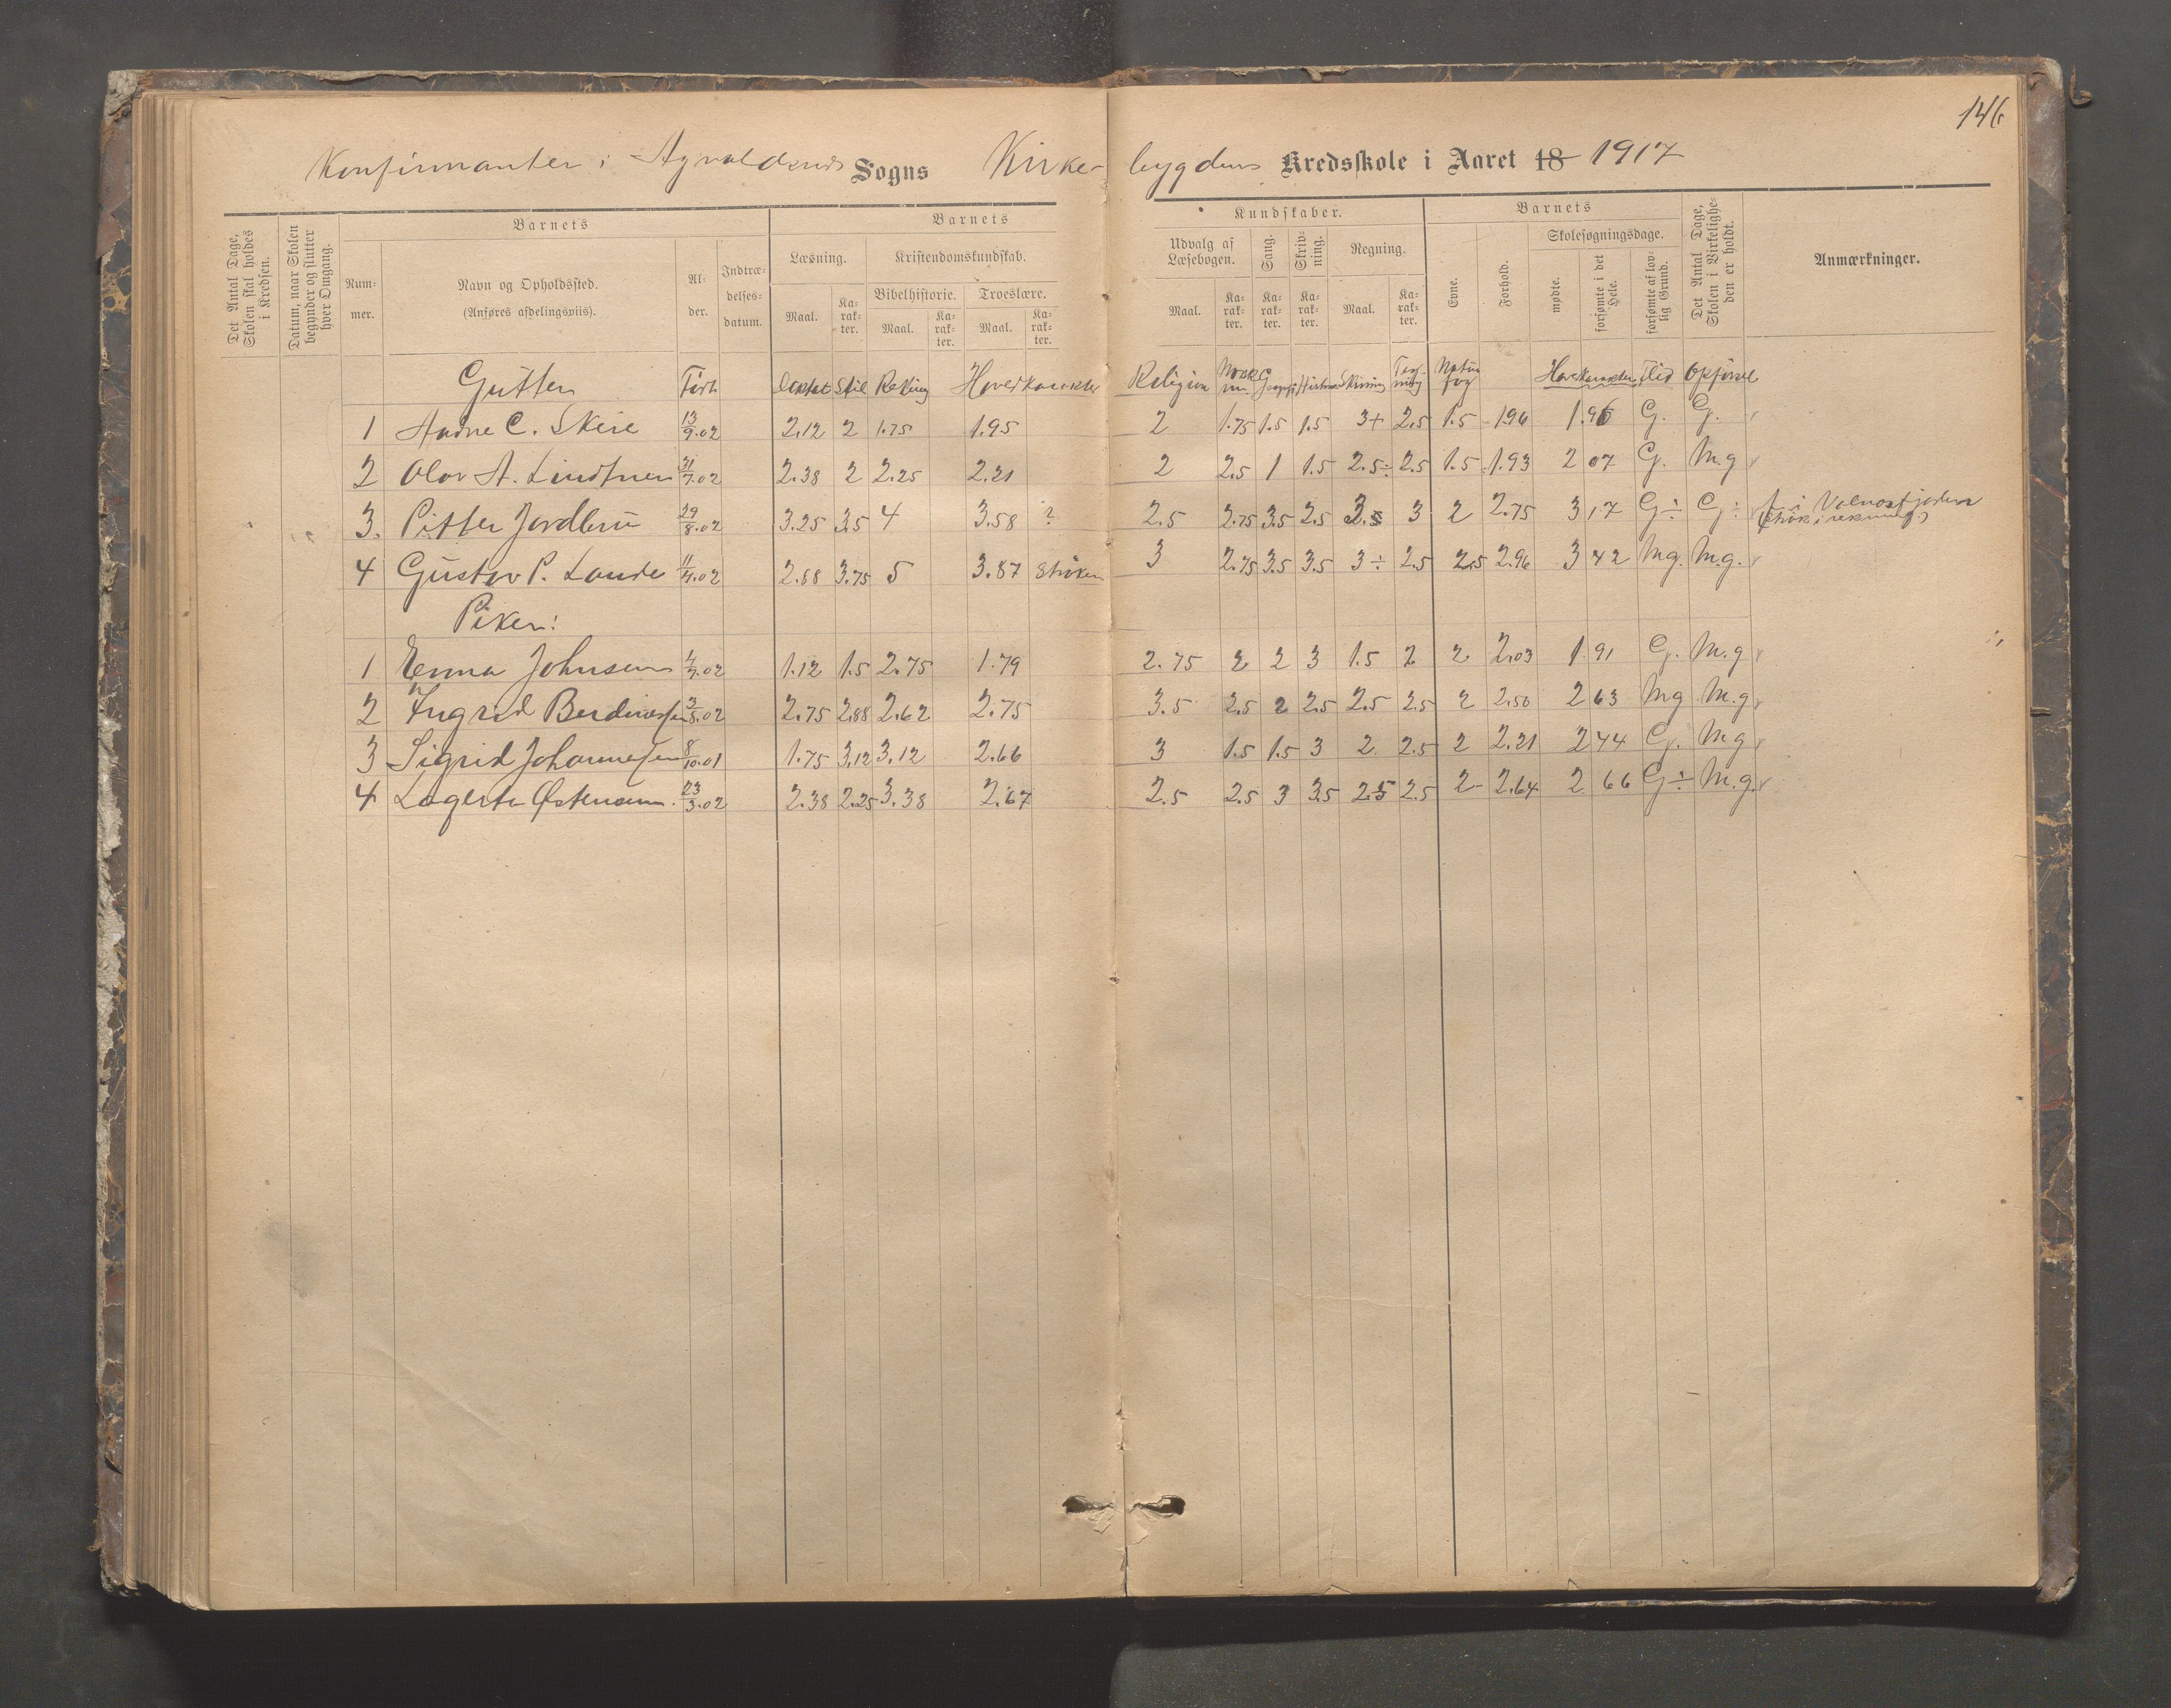 146
Konfirmanter i Agvaldsnes Sogns Kirke-bygdens Kredsskole i Aaret 18 1917
Det Antal Dage, Skolen skal holdes i Kredsen.
Datum, naar Skolen begynder og slutter hver Omgang.
Barnets
Num-mer.
Navn og Opholdssted.
(Anføres afdelingsviis).
Al-der.
Indtræ-delses-datum.
Barnets
Læsning.
Maal.
Ka-rak-ter.
Kristendomskundskab.
Bibelhistorie.
Maal.
Ka-rak-ter.
Troeslære.
Maal.
Ka-rak-ter.
Kundskaber.
Udvalg af Læsebogen.
Maal.
Ka-rak-ter.
Sang.
Ka-rak-ter.
Skriv-ning.
Ka-rak-ter.
Regning.
Maal.
Ka-rak-ter.
Barnets
Evne.
Forhold.
Skolesøgningsdage.
mødte.
forsømte i det Hele.
forsømte af lov-lig Grund.
Det Antal Dage, Skolen i Virkelighe-den er holdt.
Anmærkninger.
Gutter Født Diktat Stil Rekning Hovedkarakter Religion Norsk Historie Skrivning Teg-ning Natur fag Hovedkarakter Flid Opførsel
1 Andre C. Skeie 13/9.02 2.12 2 1.75 1.95 2 1.75 1.5 1.5 3+ 2.5 1.5 1.96 1.96 G. G.
2 Olav A. Lindtner 31/7.02 2.38 2 2.25 2.21 2 2.5 1 1.5 2.5÷ 2.5 1.5 1.93 2 07 G. M.g
3. Pitter Jordbru 29/8.02 3.25 3.5 4 3.58 ? 2.5 2.75 3.5 2.5 3.5 3 2 2.75 3 17 G÷ G÷
4 Gustav P. Lande 11/4.02 2.88 3.75 5 3.87 Strøken 3 2.75 3.5 3.5 3÷ 2.5 2.5 2.96 3 42 Mg. M.g.
Piker:
1 Emma Johnsen 4/7.02 1.12 1.5 2.75 1.79 2.75 2 2 3 1.5 2 2 2.03 1.91 G. M.g
2 Ingrid Berdinessen 3/8.02 2.75 2.88 2.62 2.75 3.5 2.5 2 2.5 2.5 2.5 2 2.50 2 63 Mg M.g
3 Sigrid Johannessen 8/10.01 1.75 3.12 3.12 2.66 3 1.5 1.5 3 2 2.5 2 2.21 2 44 G. Mg
4 Lagerta Østensen 23/3.02 2.38 2.25 3.38 2.67 2.5 2.5 3 3.5 2.5 2.5 2 2.64 2 66 G÷ M.g.